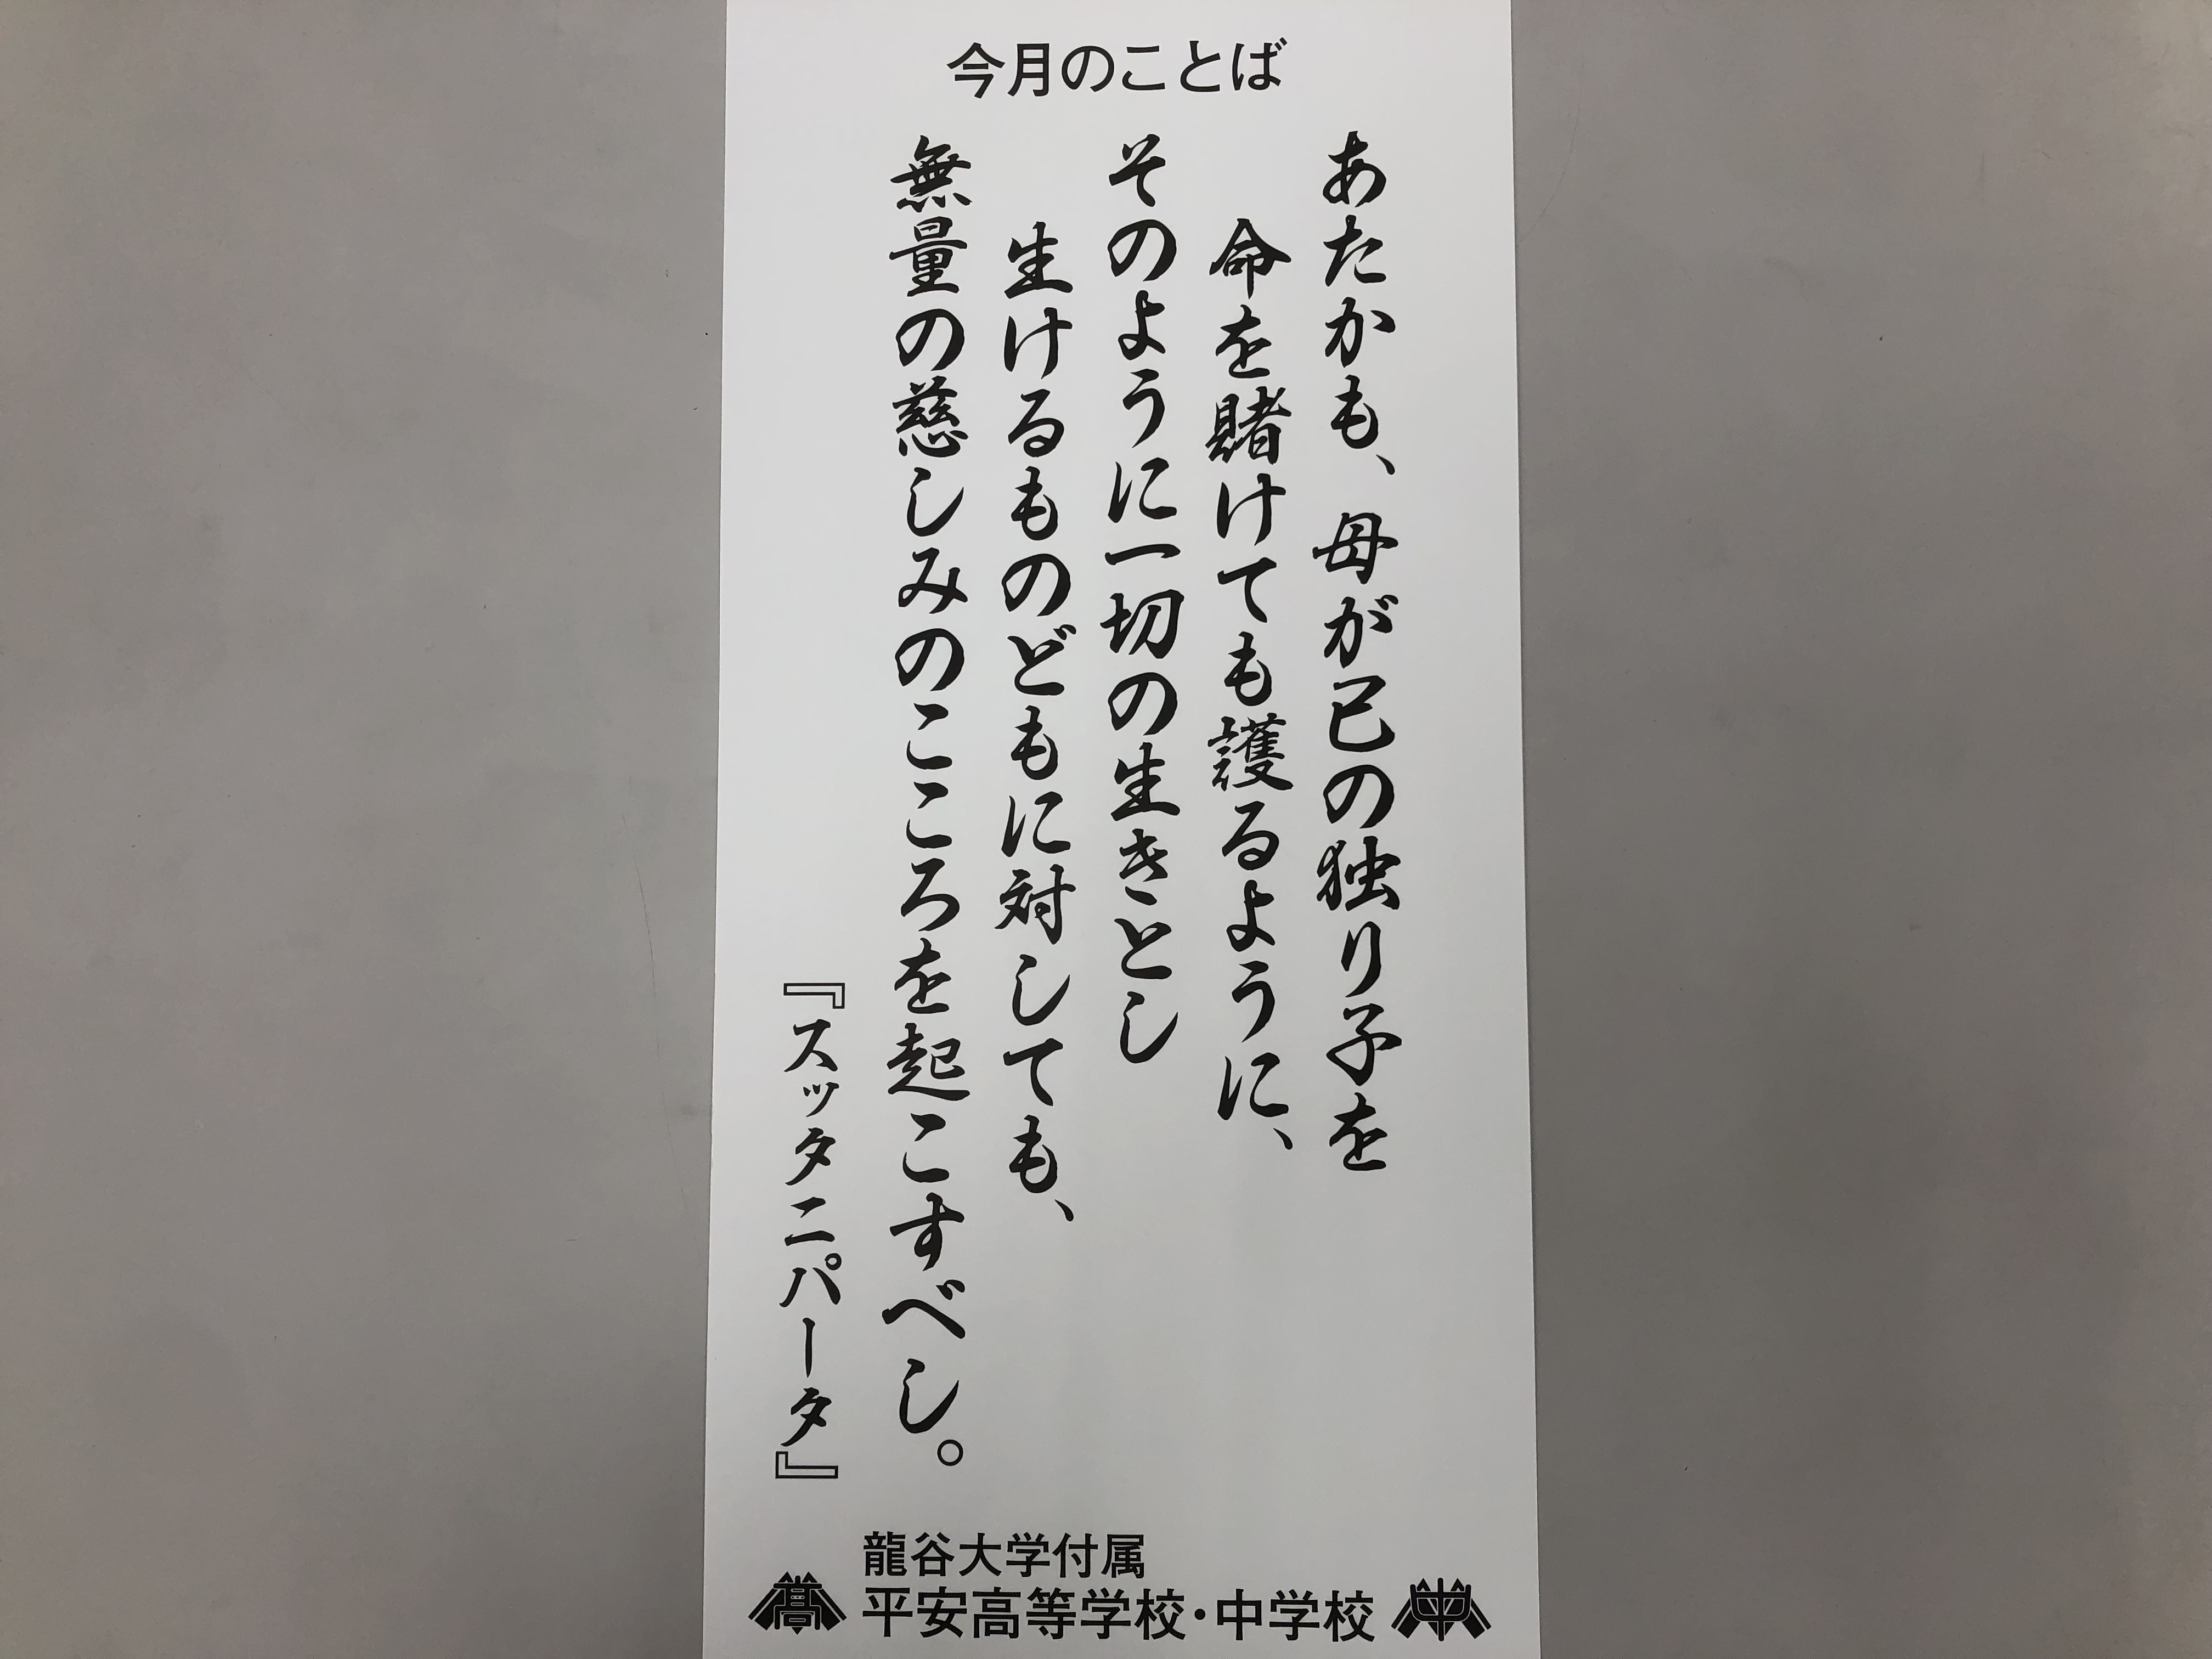 今月のことば
あたかも、母が已の独り子を
命を賭けても護るように、
そのように一切の生きとし
生けるものどもに対しても、
無量の慈しみのこころを起こすべし。
『スッタニパータ』
龍谷大学付属
高 平安高等学校・中学校 中